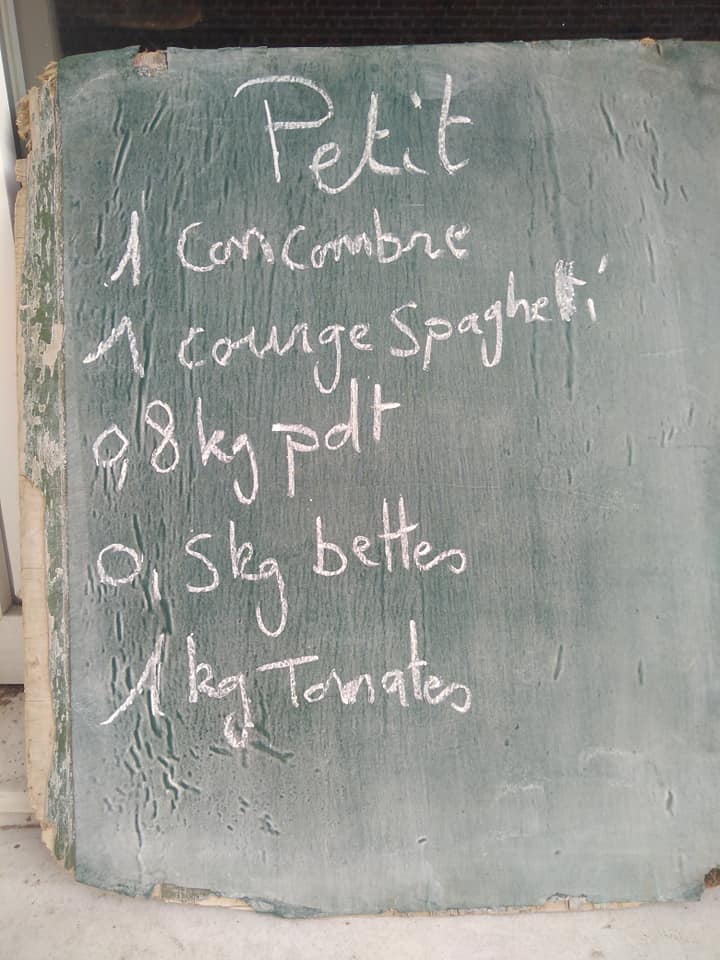 Petit
1 concombre
1 courge Spaghetti
0,8kg pdt
0,5kg bettes
1kg Tomates